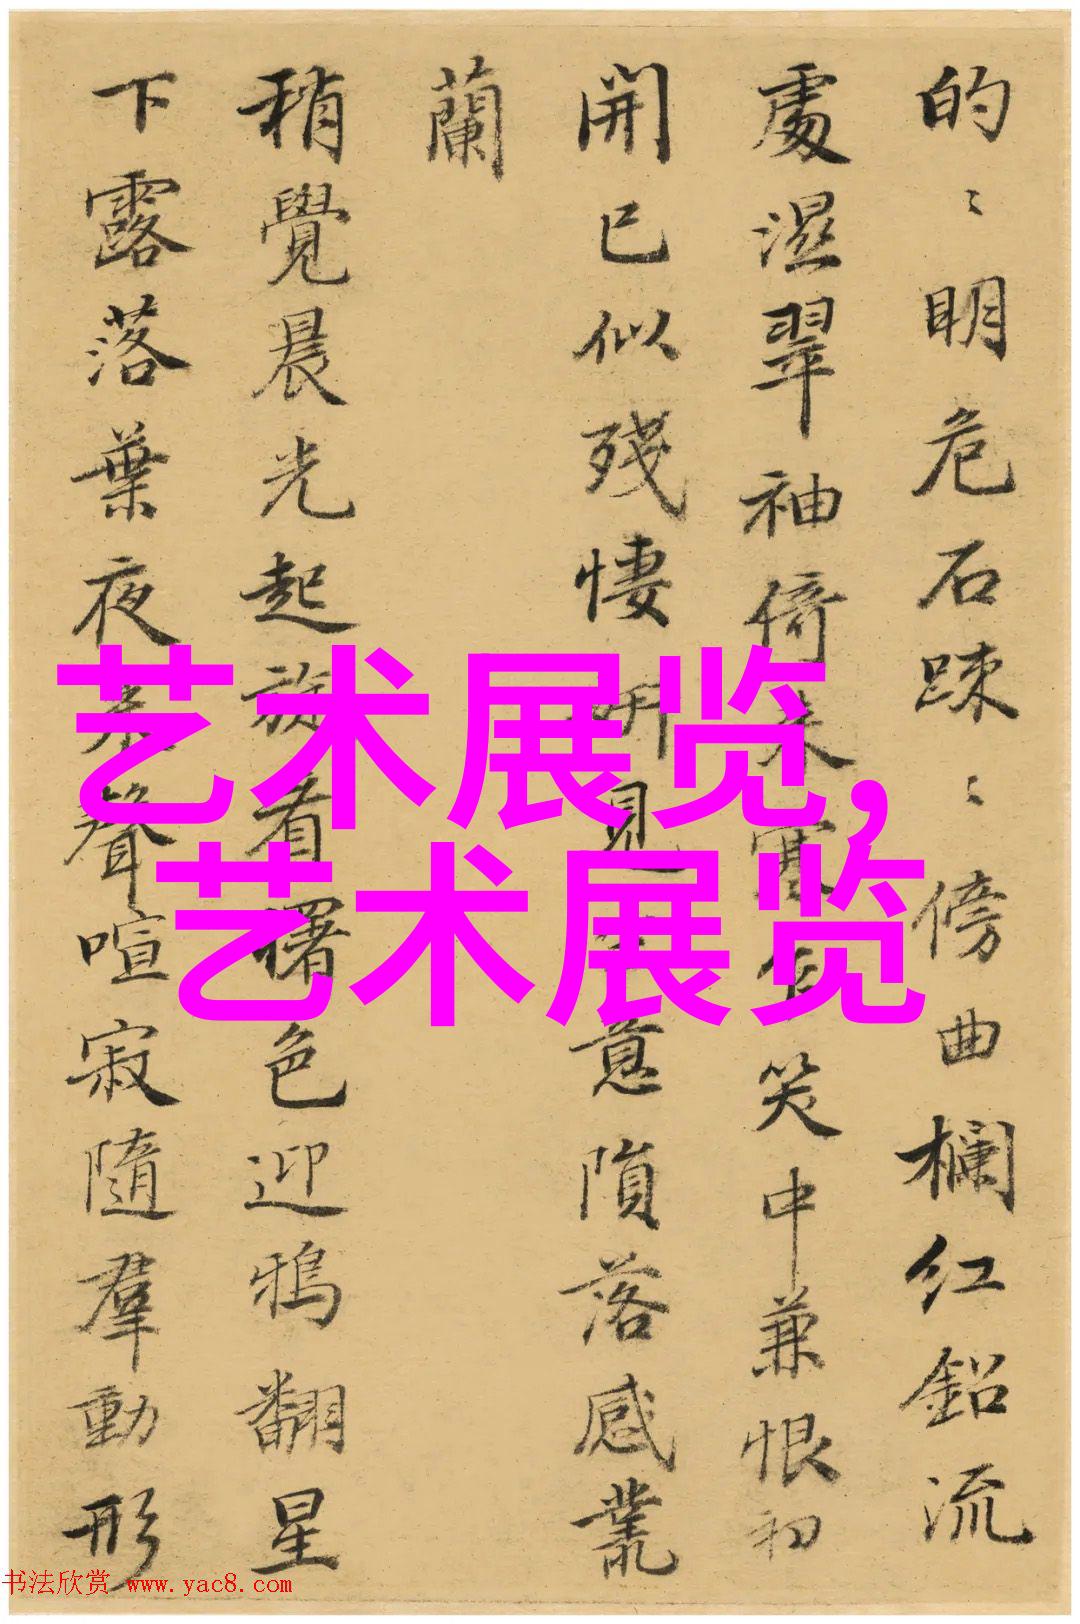 的〻明危石踈〻傍曲欄红鈆流
處濕翠袖倚朱寒乍笑中兼恨初
開已似殘悽妍見意隕落感叢
蘭
稍覺晨光起旋看曙色迎鴉翻星
下露落葉夜聲喧寂隨羣動形
艺术展览,
艺术展览
书法欣赏 www.yac8.com